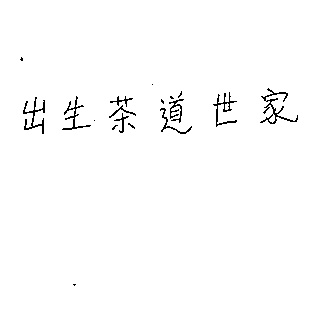 出生茶道世家